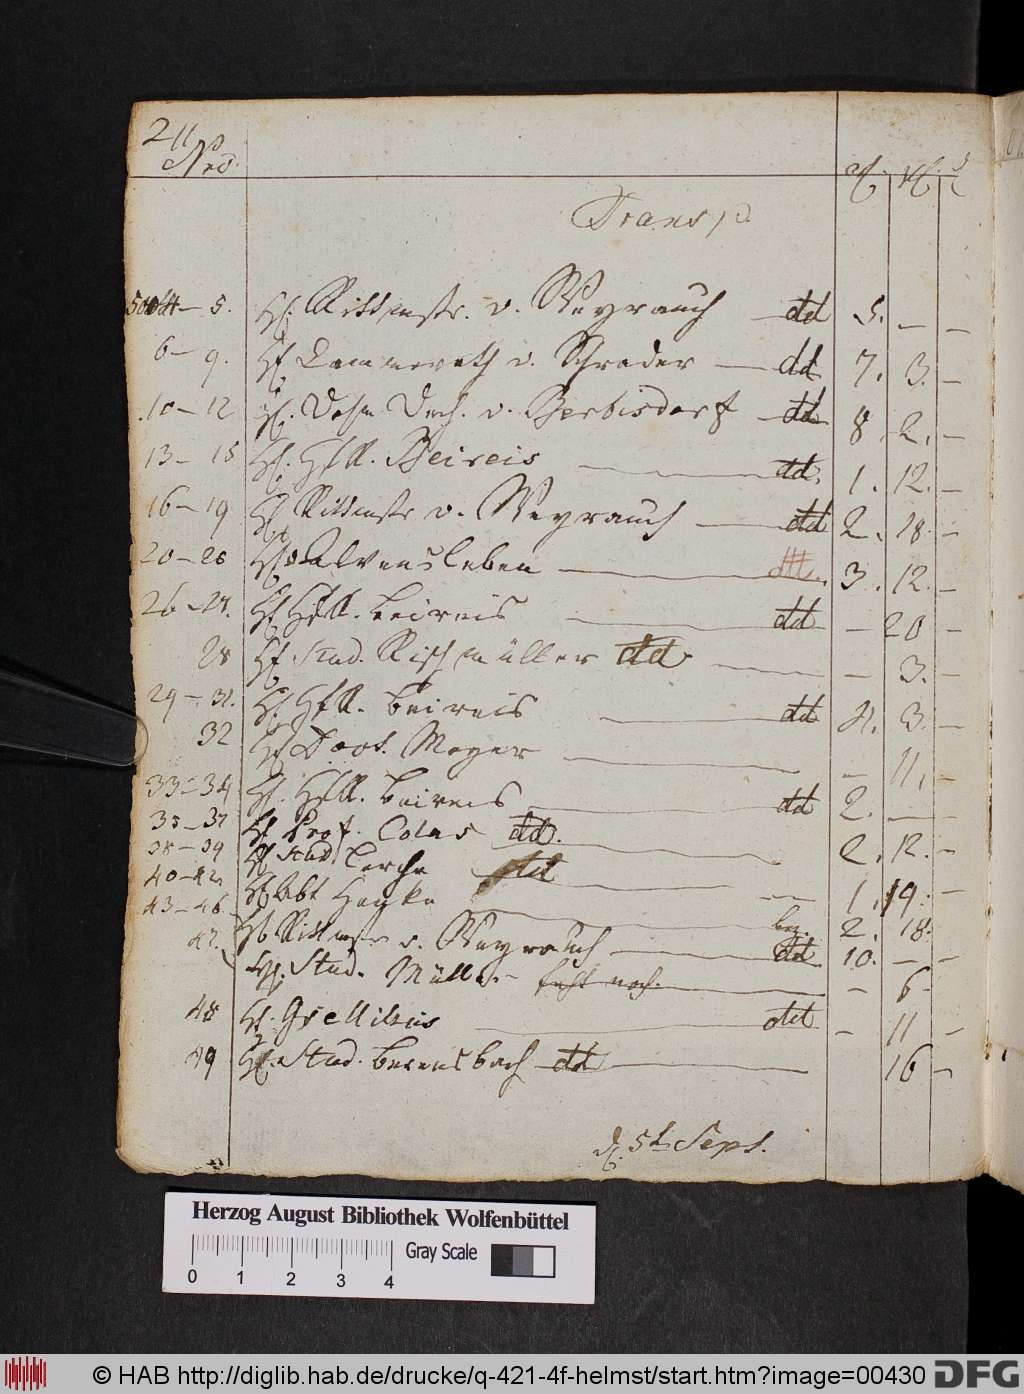 211
Nro.
Transp.
5. H. Rittmstr. v. Weyrauch dd 5. — —
6 — 9. H. Cammerrath v. Schrader — dd 7. 3. —
10 — 12 H. v. Berbisdorf — dd 8 2. —
13 — 15 H. Hfr. Beireis — dd. 1. 12. —
16 — 19 H. Rittmstr v. Weyrauch — dd 2. 18. —
20 — 25 H. v. Alvensleben — dd. 3. 12. —
26 — 27. H. Hfr. Beireis — dd — 20 —
28 H. Stud. Rischmüller dd — — 3. —
29 — 31. H. Hfr. Beireis — dd 4. 3. —
32 H. Doct. Meyer — — 11. —
33 — 34 H. Hfr. Beireis — dd 2. — —
35 — 37 H. Prof. dd. — 2. 12. —
38 — 39 H. Stud. Lerche dd — 1. 19. —
40 — 42 H. Abt Henke — bez. 2. 18.
43 — 46 H. Rittmstr v. Weyrauch — dd 10. — —
47. H. Stud. Müller fehlt noch. — — 6 —
48 H. — dd — 11 —
49 H. Stud. Berensbach dd — 16 —
d. 5t Sept.
Herzog August Bibliothek Wolfenbüttel
Gray Scale
0 1 2 3 4
© HAB http://diglib.hab.de/drucke/q-421-4f-helmst/start.htm?image=00430 DFG